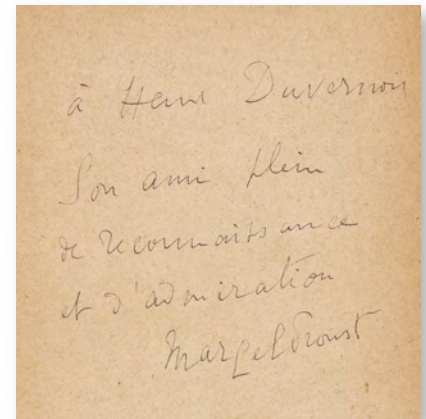 à Henri Duvernois
Son ami plein
de reconnaissance
et d'admiration
Marcel Proust